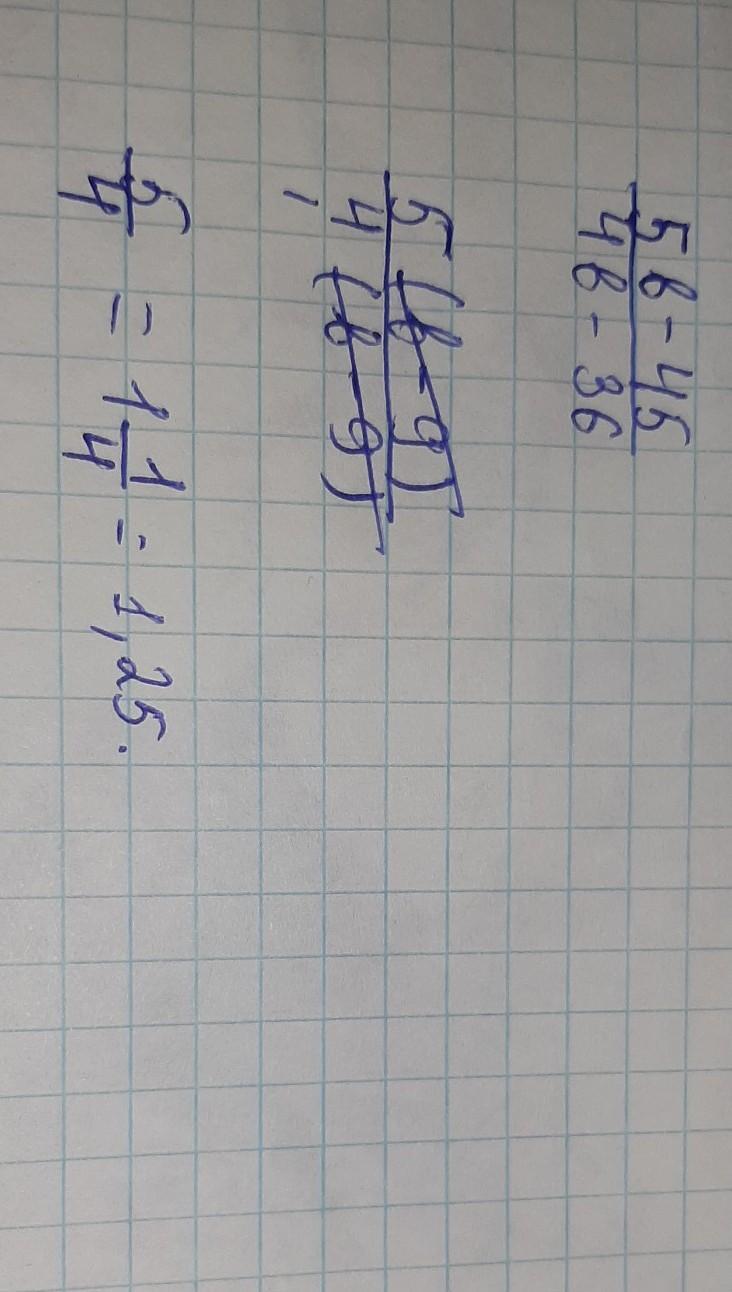 5в - 45
4в - 36
5(в - 9)
4(в - 9)
5/4 = 1 1/4 = 1,25.